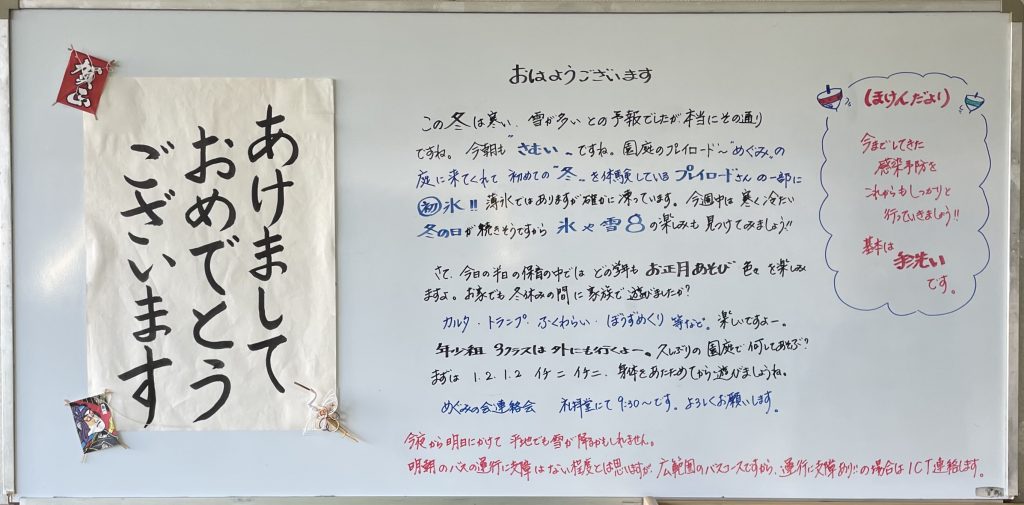 賀正
あけまして
おめでとう
ございます
おはようございます
この冬は寒い、雪が多いとの予報でしたが本当にその通り
ですね。今朝も〝さむい〟ですね。園庭のプレイロード〜〝めぐみ〟の
庭に来てくれて 初めての〝冬〟を体験しているプレイロードさんの一部に
初氷!! 薄氷ではありますが確かに凍っています。今週中は寒く冷たい
冬の日が続きそうですから 氷や雪 の楽しみも見つけてみましょう!!
さて、今日の半日の保育の中では どの学年も お正月あそび 色々を楽しみ
ますよ。お家でも冬休みの間に家族で遊びましたか?
カルタ・トランプ・ふくわらい・ぼうずめくり 等など。楽しいですよー。
年少組 3クラスは外にも行くよー。久しぶりの園庭で何してあそぶ?
まずは 1.2.1.2 イチ ニ イチ ニ. 身体をあたためてから遊びましょうね。
めぐみの会連絡会 礼拝堂にて 9:30〜です。よろしくお願いします。
今夜から明日にかけて 平地でも雪が降るかもしれません。
明朝のバスの運行に支障はない程度とは思いますが、広範囲のバスコースですから、運行に支障あり!!の場合はICT連絡します。
ほけんだより
今までしてきた
感染予防を
これからもしっかりと
行っていきましょう!!
基本は
手洗い
です。